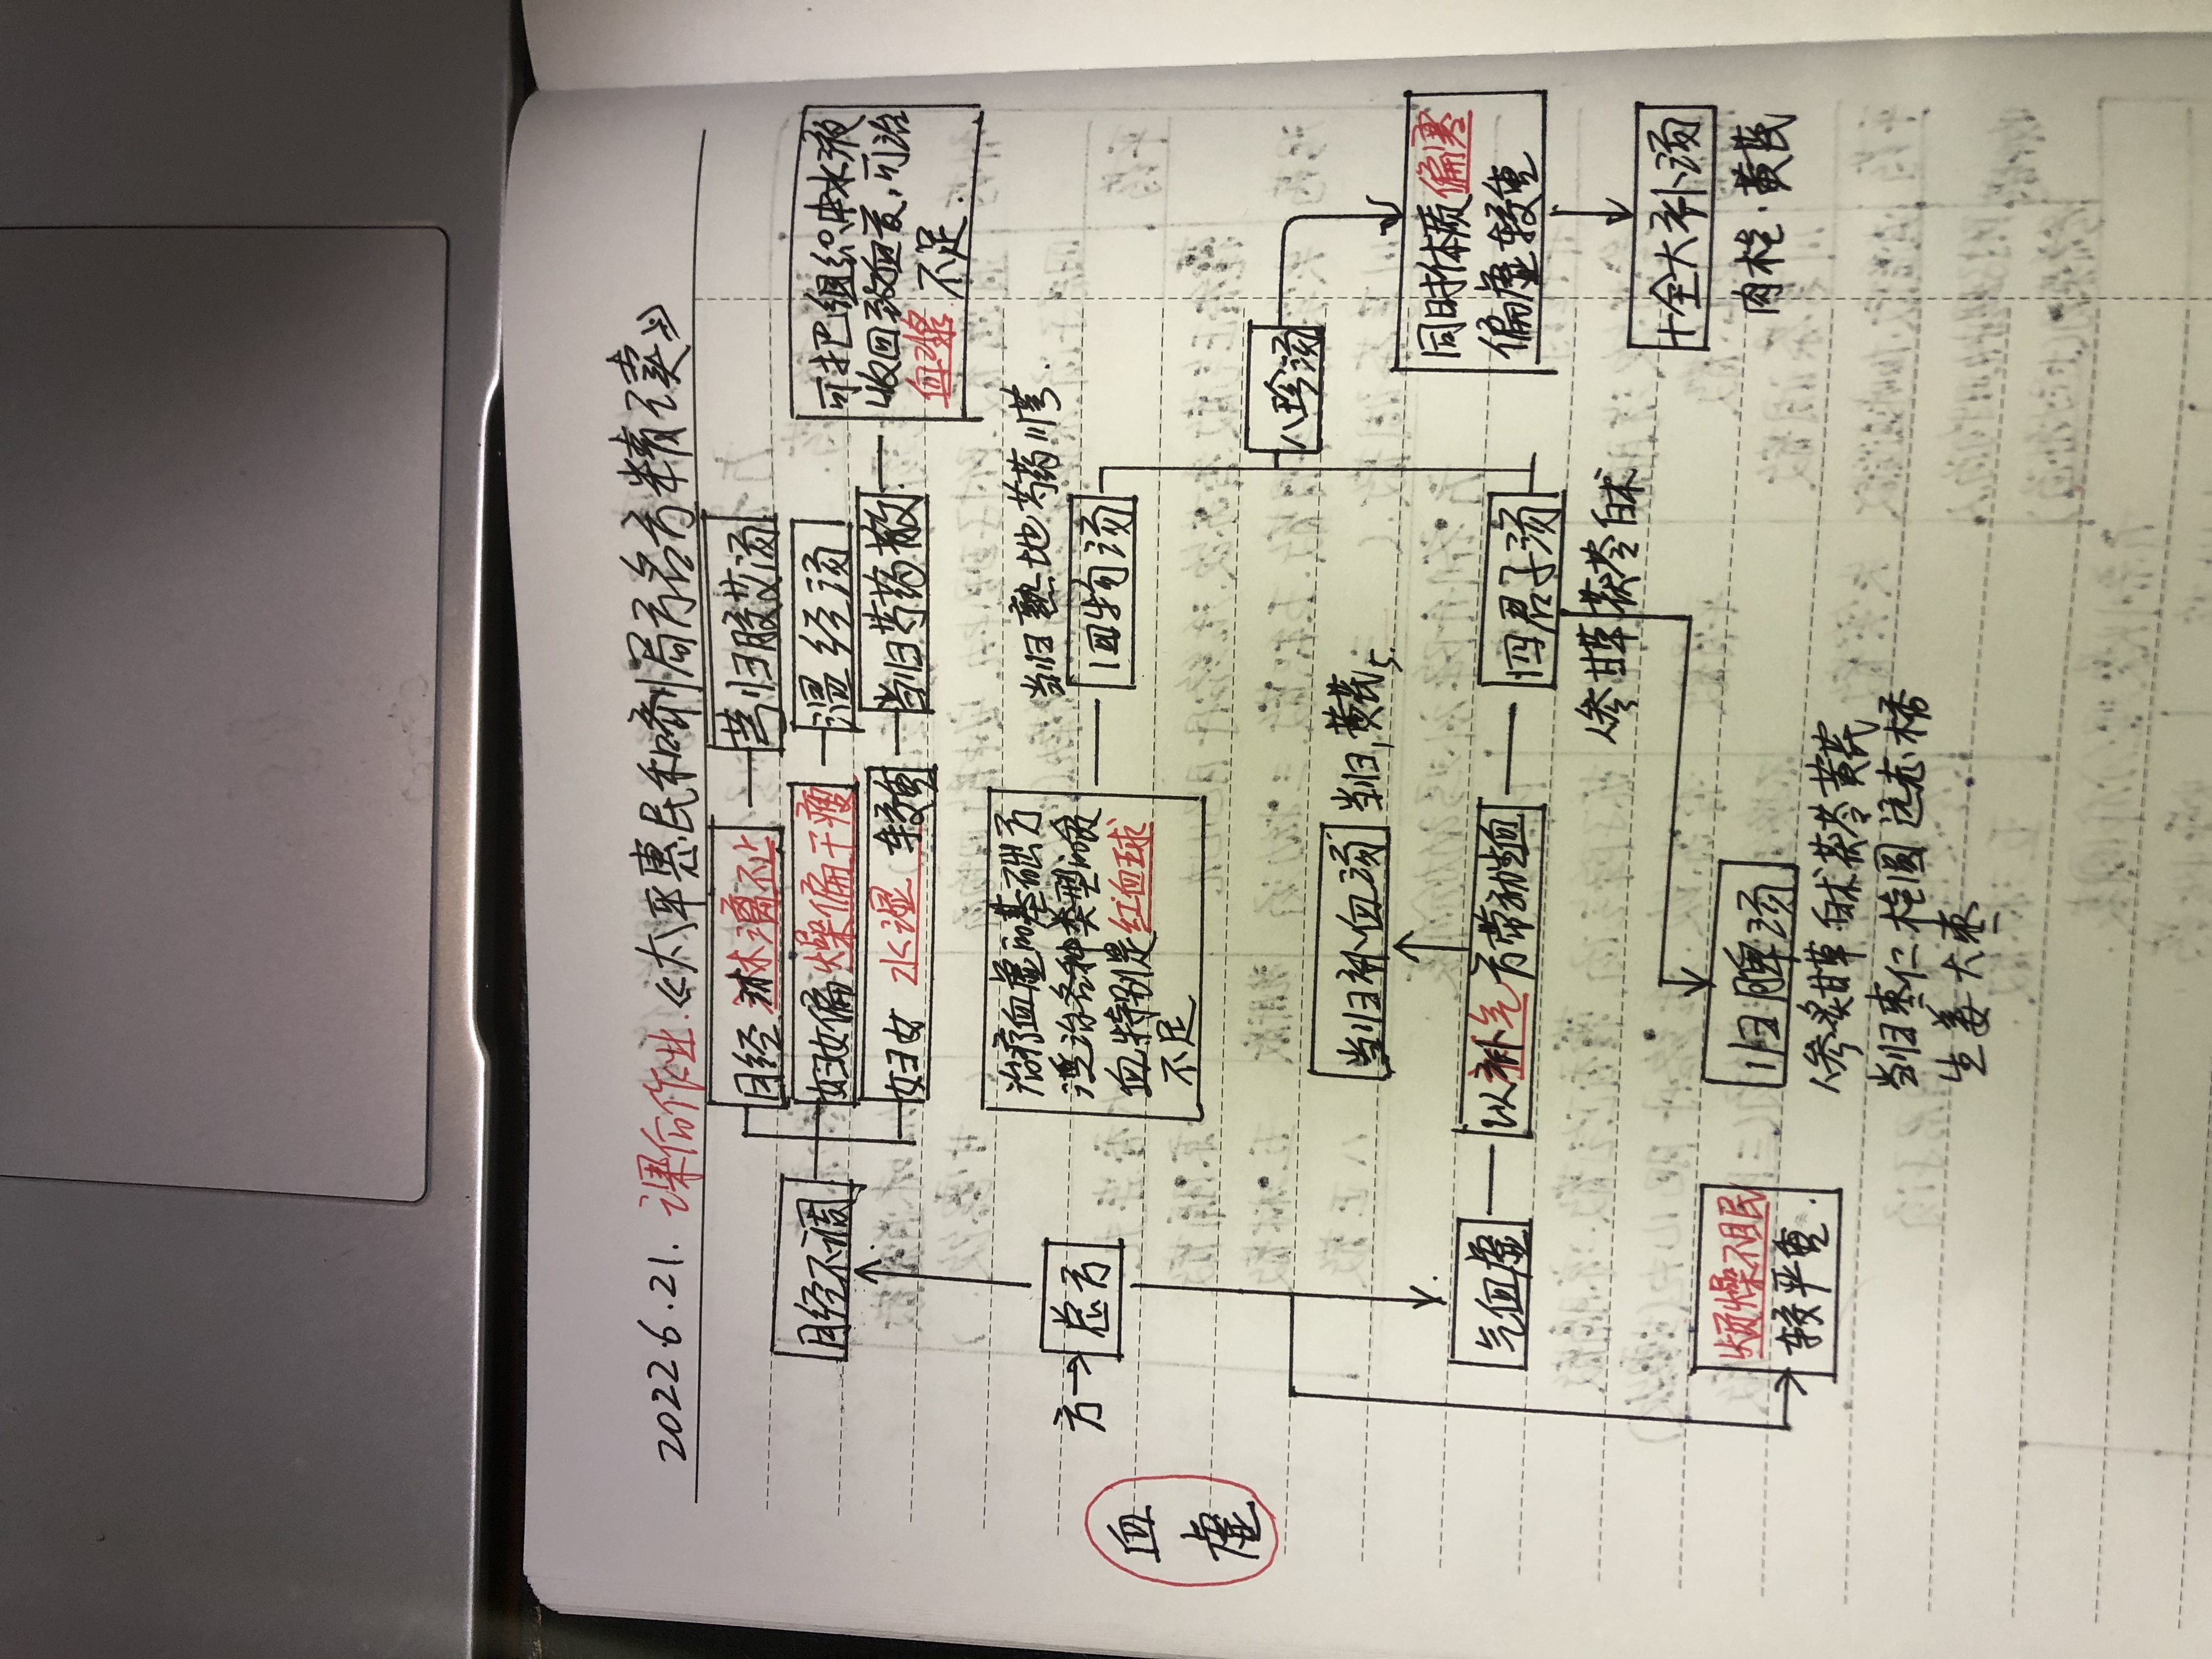 2022.6.21. 课前作业.《太平惠民和剂局方名方精读》
月经淋漓不止
芎归胶艾汤
妇女偏燥偏干瘦
温经汤
妇女 水湿 较重
当归芍药散
可把组织中水液
收回致血哀,可治
血浆 不足.
月经不调
治疗血虚的基础方
适治各种类型的贫
血特别是红血球
不足
当归 熟地 芍药 川芎.
四物汤
方→总方
血
虚
当归补血汤
当归1,黄芪5.
八珍汤
同时体质偏寒
偏虚较重
气血虚
以补气方带动造血
四君子汤
人参 甘草 茯苓 白术
十全大补汤
肉桂.黄芪
烦燥不眠
较严重.
归脾汤
人参 炙甘草 白术 茯苓 黄芪
当归 枣仁 桂圆 远志 木香
生姜 大枣